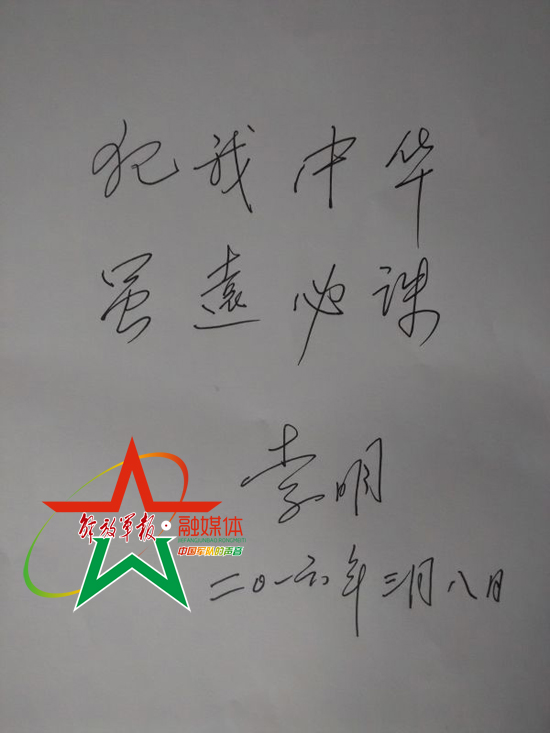 犯我中华
虽遠必诛
李明
解放军报·融媒体
JIEFANGJUNBAORONGMEITI
中国军队的声音
二〇一六年三月八日